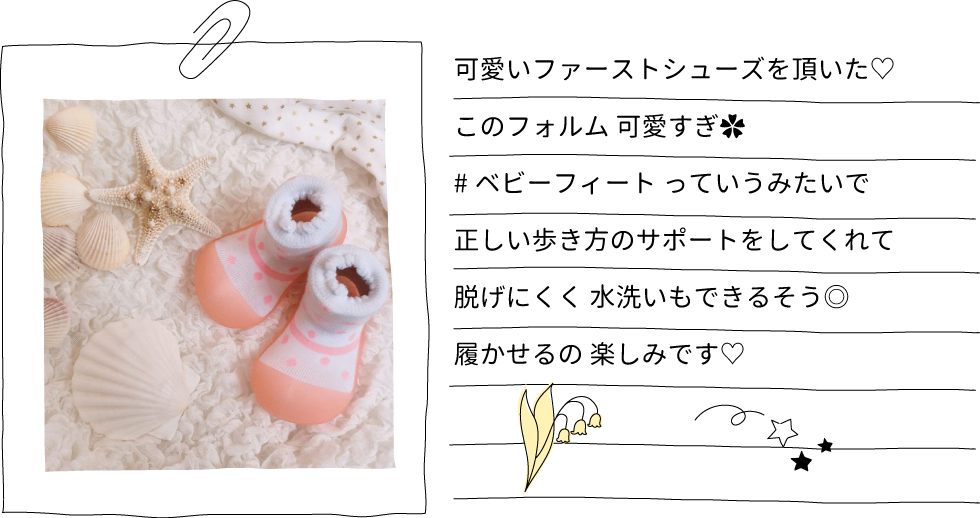 可愛いファーストシューズを頂いた♡
このフォルム 可愛すぎ✿
# ベビーフィート っていうみたいで
正しい歩き方のサポートをしてくれて
脱げにくく 水洗いもできるそう◎
履かせるの 楽しみです♡